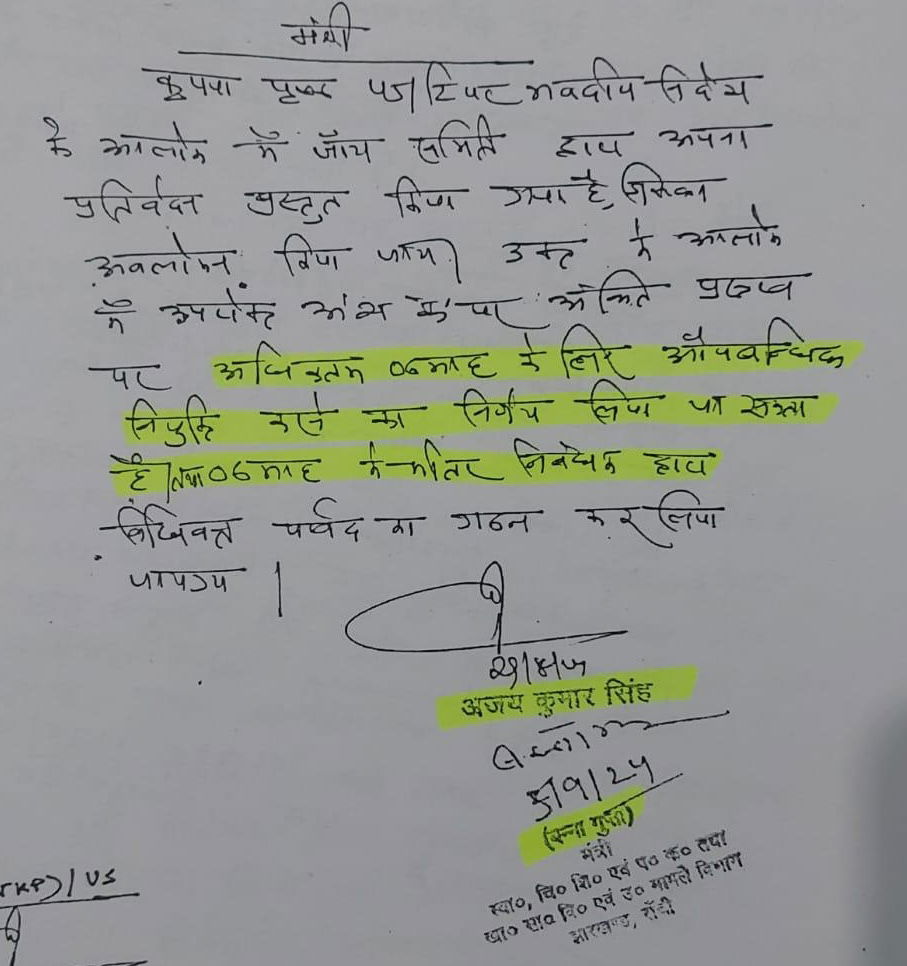 मंत्री
कृपया पृष्ठ पर भवदीय निदेश
के आलोक में जाँच समिति द्वारा अपना
प्रतिवेदन प्रस्तुत किया गया है, जिसका
अवलोकन किया जाय। उक्त के आलोक
में उपरोक्त अंश पर अंकित प्रारूप
पर अधिकतम 06 माह के लिए औपबन्धिक
नियुक्ति करने का निर्णय लिया जा सकता
है। तथा 06 माह के भीतर निबंधक द्वारा
विधिवत पर्षद का गठन कर लिया
जायेगा।
अजय कुमार सिंह
(बन्ना गुप्ता)
मंत्री
स्वा०, चि० शि० एवं प० क० तथा
खा० सा० वि० एवं उ० मामले विभाग
झारखण्ड, राँची
/US